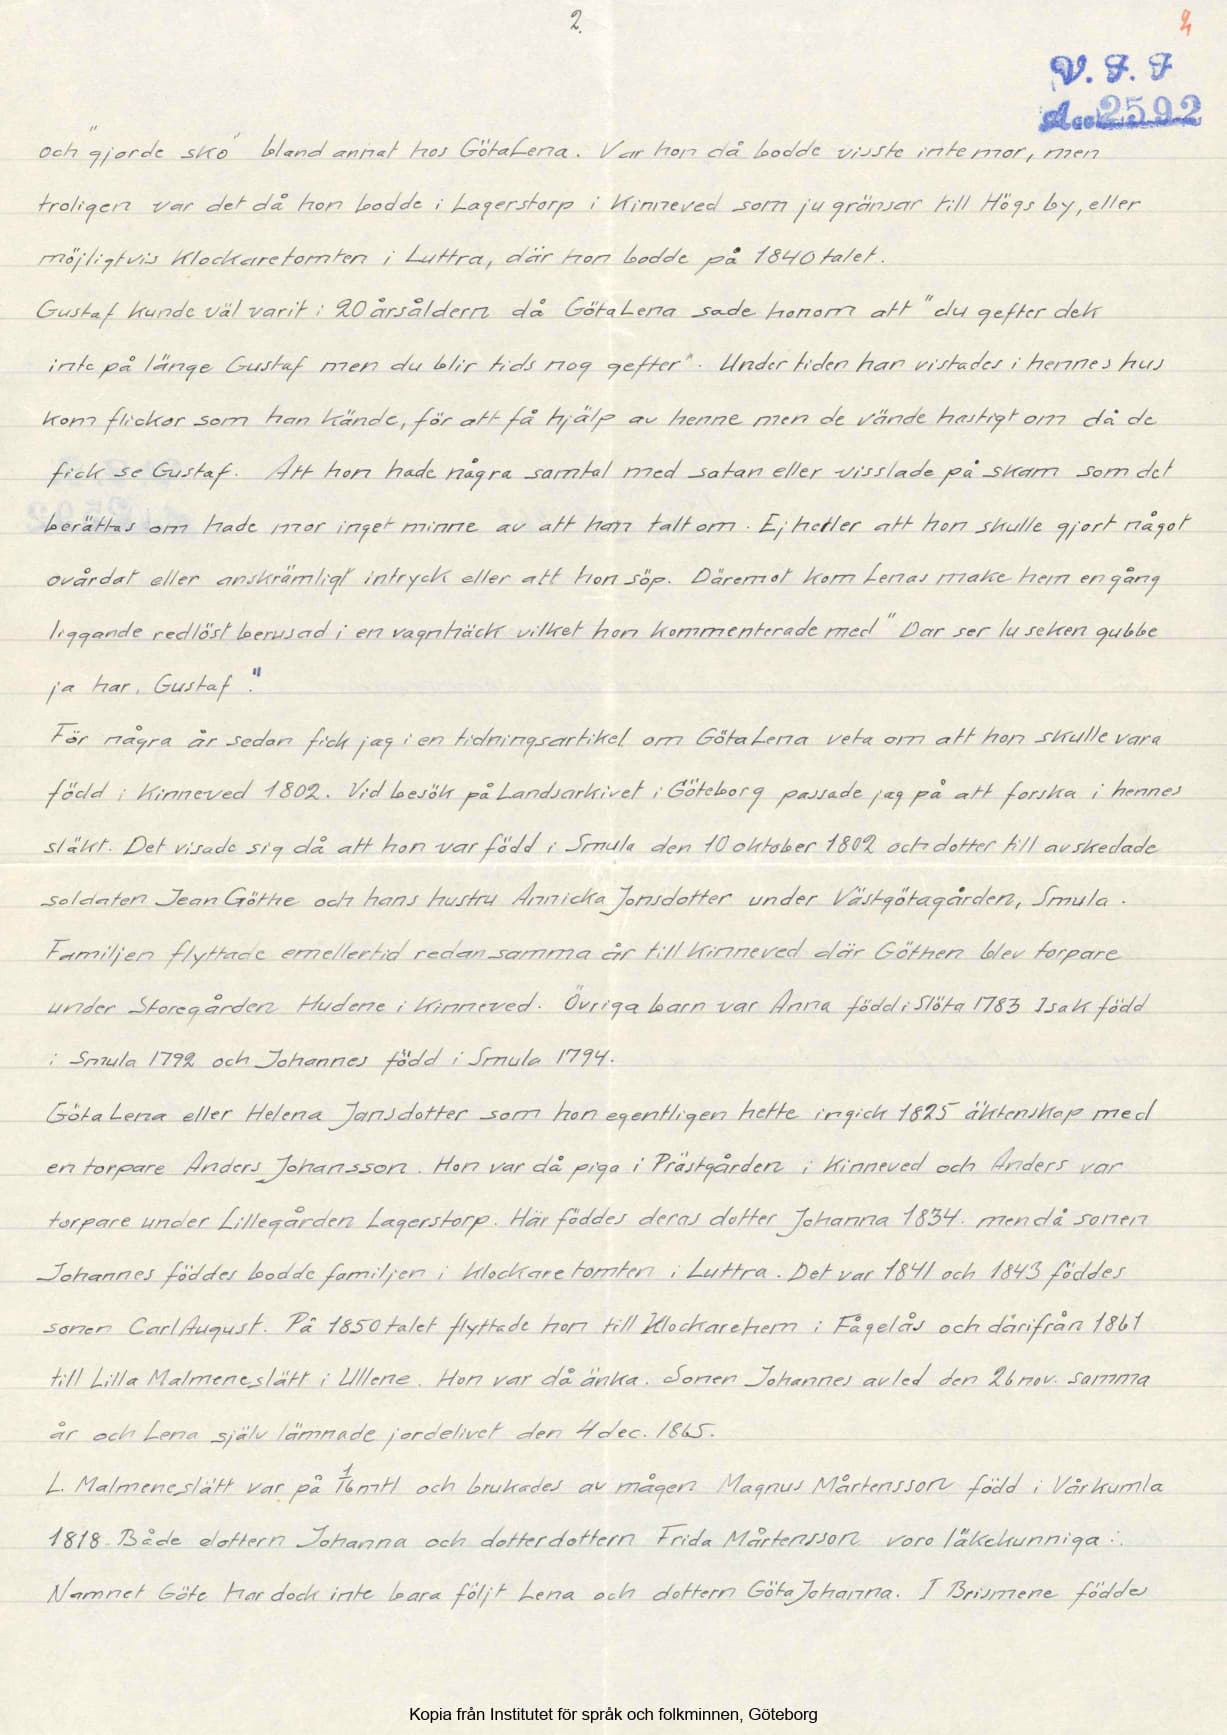 2.
2
V. F. F
Acc 2592
och "gjorde sko" bland annat hos GötaLena. Var hon då bodde visste inte mor, men
troligen var det då hon bodde i Lagerstorp i Kinneved som ju gränsar till Högs by, eller
möjligtvis Klockaretomten i Luttra, där hon bodde på 1840 talet.
Gustaf kunde väl varit i 20 årsåldern då GötaLena sade honom att "du gefter dek
inte på länge Gustaf men du blir tids nog gefter". Under tiden han vistades i hennes hus
kom flickor som han kände, för att få hjälp av henne men de vände hastigt om då de
fick se Gustaf. Att hon hade några samtal med satan eller visslade på skam som det
berättas om hade mor inget minne av att han talt om. Ej heller att hon skulle gjort något
ovårdat eller anskrämligt intryck eller att hon söp. Däremot kom Lenas make hem en gång
liggande redlöst berusad i en vagnhäck vilket hon kommenterade med "Dar ser lu seken gubbe
ja har, Gustaf."
För några år sedan fick jag i en tidningsartikel om GötaLena veta om att hon skulle vara
född i Kinneved 1802. Vid besök på Landsarkivet i Göteborg passade jag på att forska i hennes
släkt. Det visade sig då att hon var född i Smula den 10 oktober 1802 och dotter till avskedade
soldaten Jean Göthe och hans hustru Annicka Jonsdotter under Västgötagården, Smula.
Familjen flyttade emellertid redan samma år till Kinneved där Göthen blev torpare
under Storegården Hudene i Kinneved. Övriga barn var Anna född i Slöta 1783 Isak född
i Smula 1792 och Johannes född i Smula 1794.
Göta Lena eller Helena Jansdotter som hon egentligen hette ingick 1825 äktenskap med
en torpare Anders Johansson. Hon var då piga i Prästgården i Kinneved och Anders var
torpare under Lillegården Lagerstorp. Här föddes deras dotter Johanna 1834. men då sonen
Johannes föddes bodde familjen i Klockaretomten i Luttra. Det var 1841 och 1843 föddes
sonen Carl August. På 1850 talet flyttade hon till Klockarehem i Fågelås och därifrån 1861
till Lilla Malmeneslätt i Ullene. Hon var då änka. Sonen Johannes avled den 26 nov. samma
år och Lena själv lämnade jordelivet den 4 dec. 1865.
L. Malmeneslätt var på 1/16 mtl och brukades av mågen Magnus Mårtensson född i Vårkumla
1818. Både dottern Johanna och dotterdottern Frida Mårtensson voro läkekunniga.
Namnet Göte har dock inte bara följt Lena och dottern GötaJohanna. I Brismene föddes
Kopia från Institutet för språk och folkminnen, Göteborg